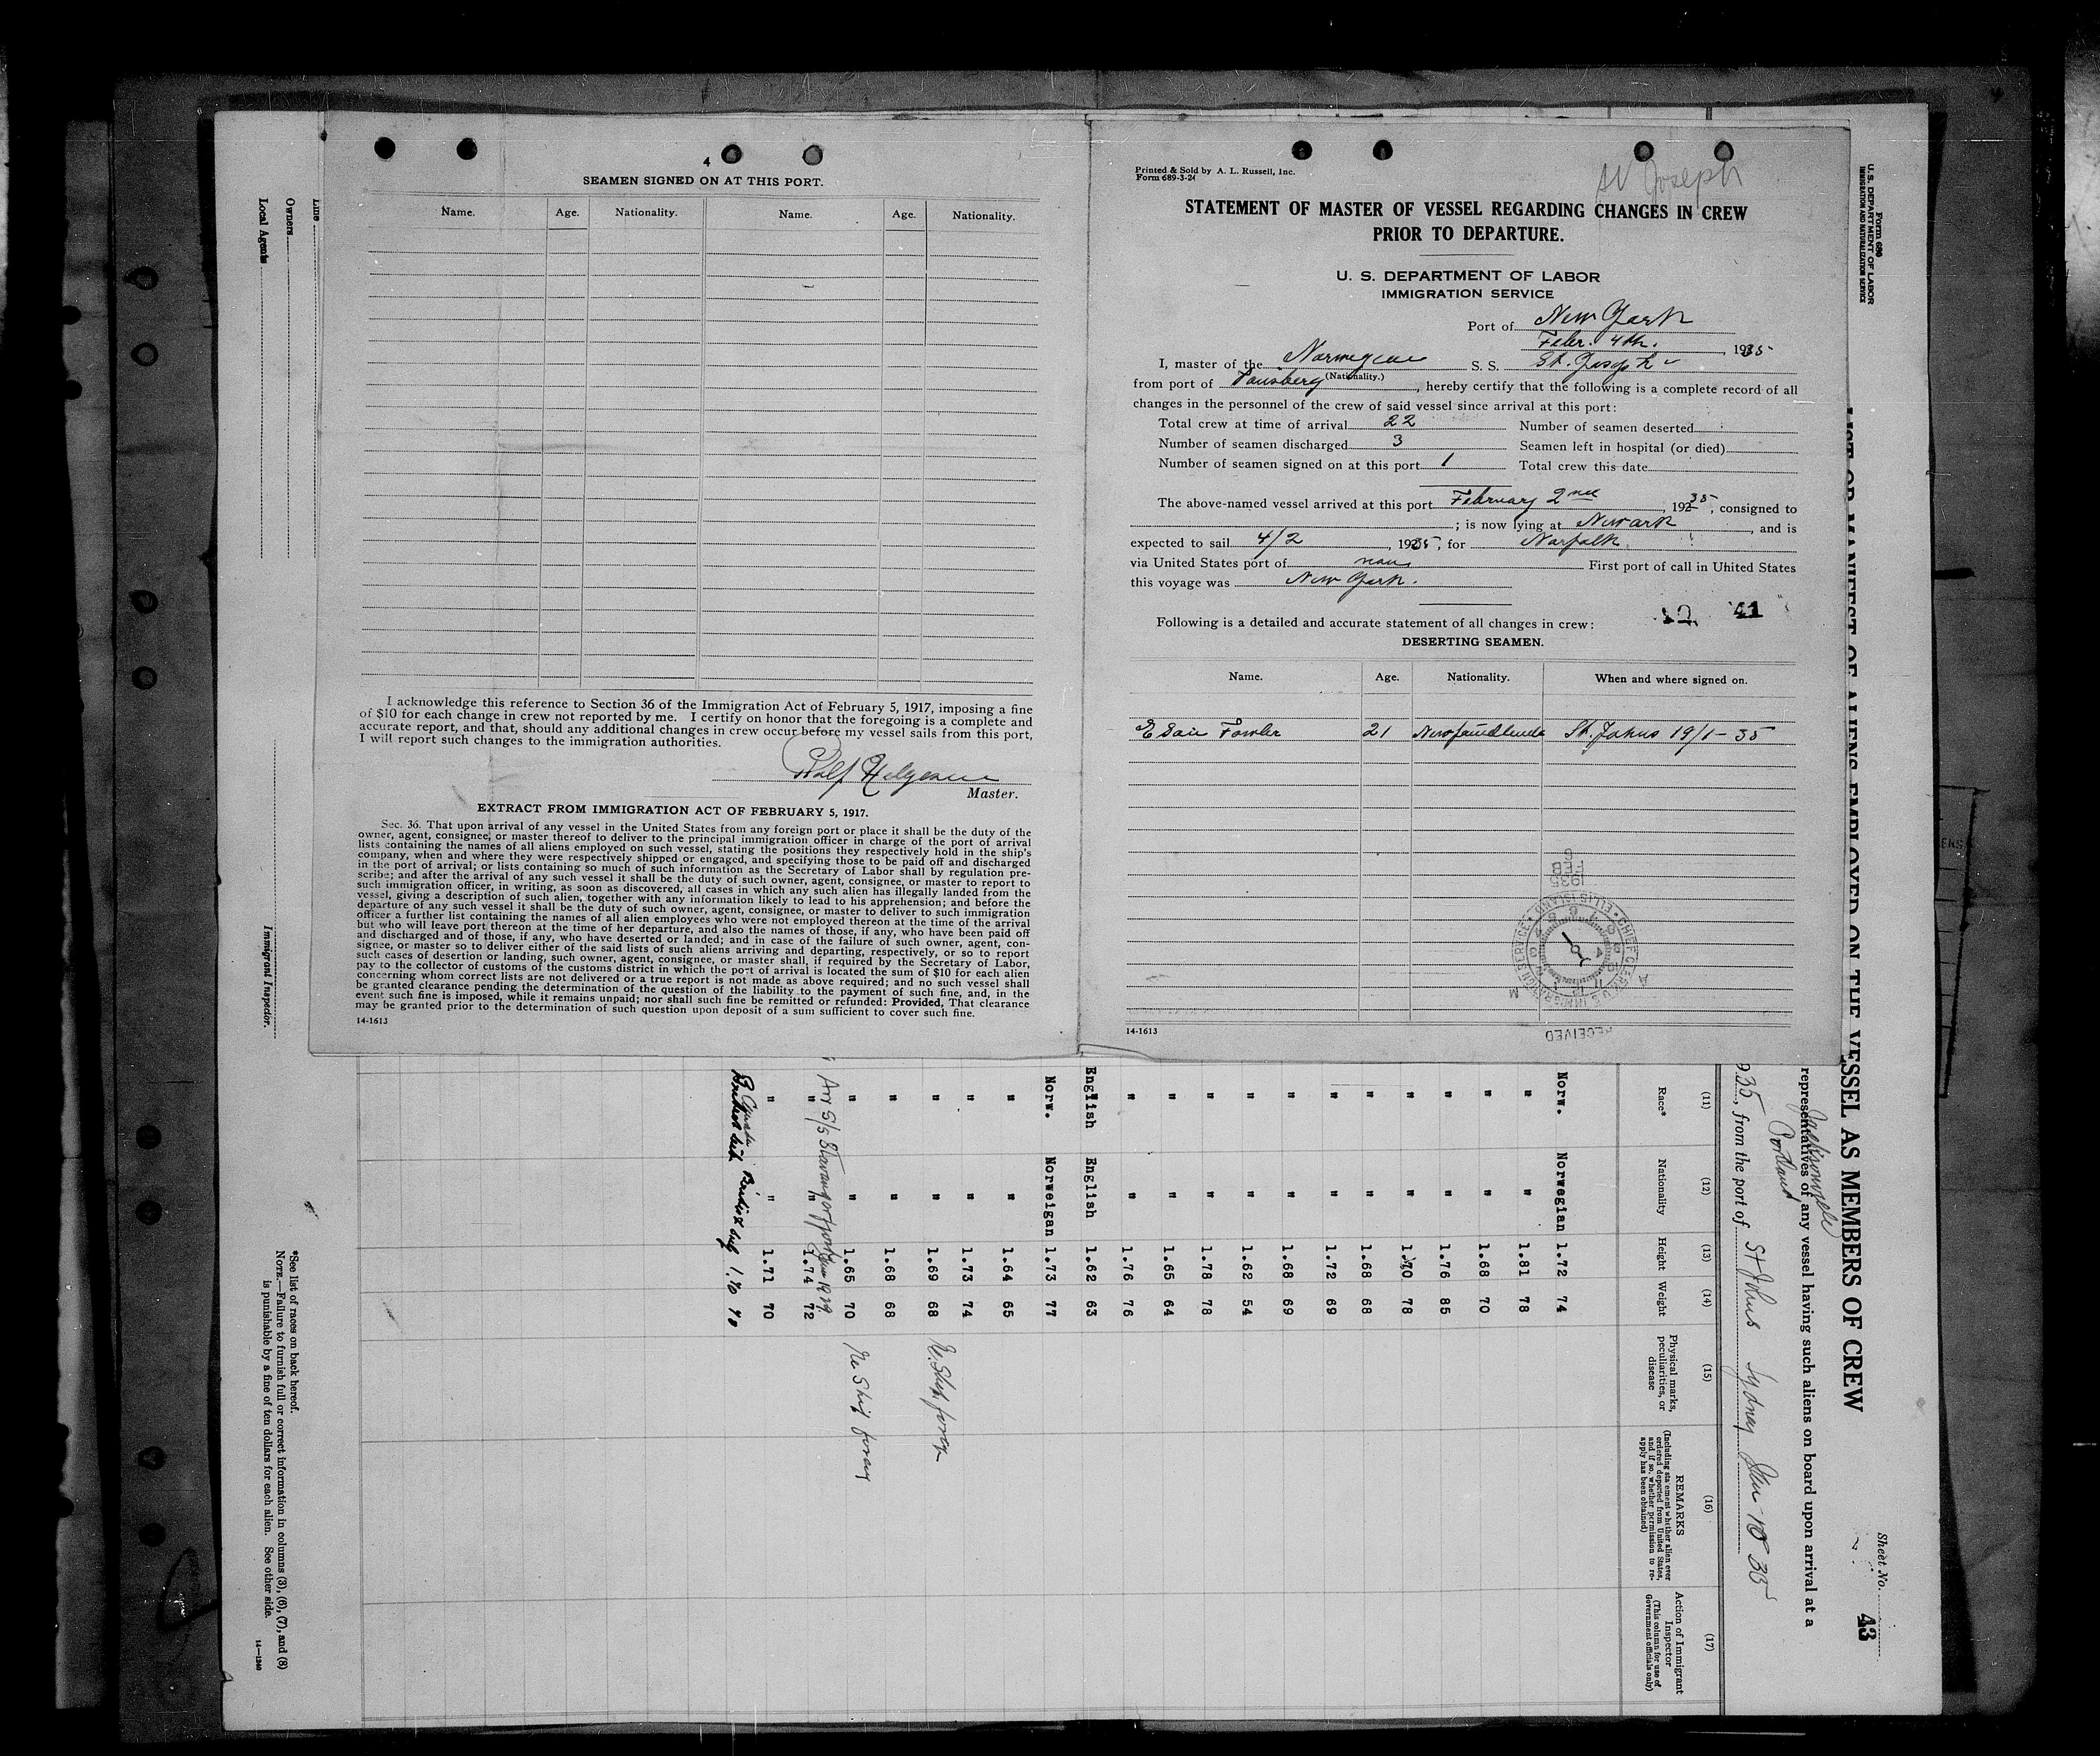 4
SEAMEN SIGNED ON AT THIS PORT.
Name. Age. Nationality. Name. Age. Nationality.
I acknowledge this reference to Section 36 of the Immigration Act of February 5, 1917, imposing a fine
of $10 for each change in crew not reported by me. I certify on honor that the foregoing is a complete and
accurate report, and that, should any additional changes in crew occur before my vessel sails from this port,
I will report such changes to the immigration authorities.
Master.
EXTRACT FROM IMMIGRATION ACT OF FEBRUARY 5, 1917.
Sec. 36. That upon arrival of any vessel in the United States from any foreign port or place it shall be the duty of the
owner, agent, consignee, or master thereof to deliver to the principal immigration officer in charge of the port of arrival
lists containing the names of all aliens employed on such vessel, stating the positions they respectively hold in the ship's
company, when and where they were respectively shipped or engaged, and specifying those to be paid off and discharged
in the port of arrival; or lists containing so much of such information as the Secretary of Labor shall by regulation pre-
scribe; and after the arrival of any such vessel it shall be the duty of such owner, agent, consignee, or master to report to
such immigration officer, in writing, as soon as discovered, all cases in which any such alien has illegally landed from the
vessel, giving a description of such alien, together with any information likely to lead to his apprehension; and before the
departure of any such vessel it shall be the duty of such owner, agent, consignee, or master to deliver to such immigration
officer a further list containing the names of all alien employees who were not employed thereon at the time of the arrival
but who will leave port thereon at the time of her departure, and also the names of those, if any, who have been paid off
and discharged and of those, if any, who have deserted or landed; and in case of the failure of such owner, agent, con-
signee, or master so to deliver either of the said lists of such aliens arriving and departing, respectively, or so to report
such cases of desertion or landing, such owner, agent, consignee, or master shall, if required by the Secretary of Labor,
pay to the collector of customs of the customs district in which the port of arrival is located the sum of $10 for each alien
concerning whom correct lists are not delivered or a true report is not made as above required; and no such vessel shall
be granted clearance pending the determination of the question of the liability to the payment of such fine, and, in the
event such fine is imposed, while it remains unpaid; nor shall such fine be remitted or refunded: Provided, That clearance
may be granted prior to the determination of such question upon deposit of a sum sufficient to cover such fine.
14-1613
Printed & Sold by A. L. Russell, Inc.
Form 689-3-24
St Joseph
STATEMENT OF MASTER OF VESSEL REGARDING CHANGES IN CREW
PRIOR TO DEPARTURE.
U. S. DEPARTMENT OF LABOR
IMMIGRATION SERVICE
Port of New York
Febr. 4th. , 1935
I, master of the Norwegian S. S. St. Joseph
(Nationality.)
from port of Tønsberg, hereby certify that the following is a complete record of all
changes in the personnel of the crew of said vessel since arrival at this port:
Total crew at time of arrival 22 Number of seamen deserted
Number of seamen discharged 3 Seamen left in hospital (or died)
Number of seamen signed on at this port 1 Total crew this date
The above-named vessel arrived at this port February 2nd, 1935, consigned to
; is now lying at Newark, and is
expected to sail 4/2, 1935, for Norfolk
via United States port of First port of call in United States
this voyage was New York.
12 41
Following is a detailed and accurate statement of all changes in crew:
DESERTING SEAMEN.
Name. Age. Nationality. When and where signed on.
Fowler 21 St. Johns 19/1-35
1935
FEB
CHIEF CLERK U.S. IMMIGRATION SERVICE ELLIS ISLAND
A M
RECEIVED
14-1613
Form 689
U. S. DEPARTMENT OF LABOR
IMMIGRATION AND NATURALIZATION SERVICE
Sheet No. 2
43
LIST OR MANIFEST OF ALIENS EMPLOYED ON THE VESSEL AS MEMBERS OF CREW
representatives of any vessel having such aliens on board upon arrival at a
Jacksonville
Portland
935, from the port of St Johns Sydney Jan 10 35
(11) (12) (13) (14) (15) (16) (17)
Race* Nationality Height Weight Physical marks, peculiarities, or disease
REMARKS (Including statement whether alien ever ordered deported from United States, and if so, whether permission to reapply has been obtained)
Action of Immigrant Inspector (This column for use of Government officials only)
Norw. Norwegian 1.72 74
" " 1.81 78
" " 1.68 70
" " 1.76 85
" " 1.70 78
" " 1.68 68
" " 1.72 69
" " 1.68 69
" " 1.62 54
" " 1.78 78
" " 1.65 64
" " 1.76 76
English English 1.62 63
Norw. Norweigan 1.73 77
" " 1.64 65
" " 1.73 74
" " 1.69 68
" " 1.68 68
" " 1.65 70
" " 1.74 72
" " 1.71 70
1.70 70
Line
Owners
Local Agents
Immigrant Inspector.
*See list of races on back hereof.
NOTE.—Failure to furnish full or correct information in columns (3), (6), (7), and (8)
is punishable by a fine of ten dollars for each alien. See other side.
14—1240